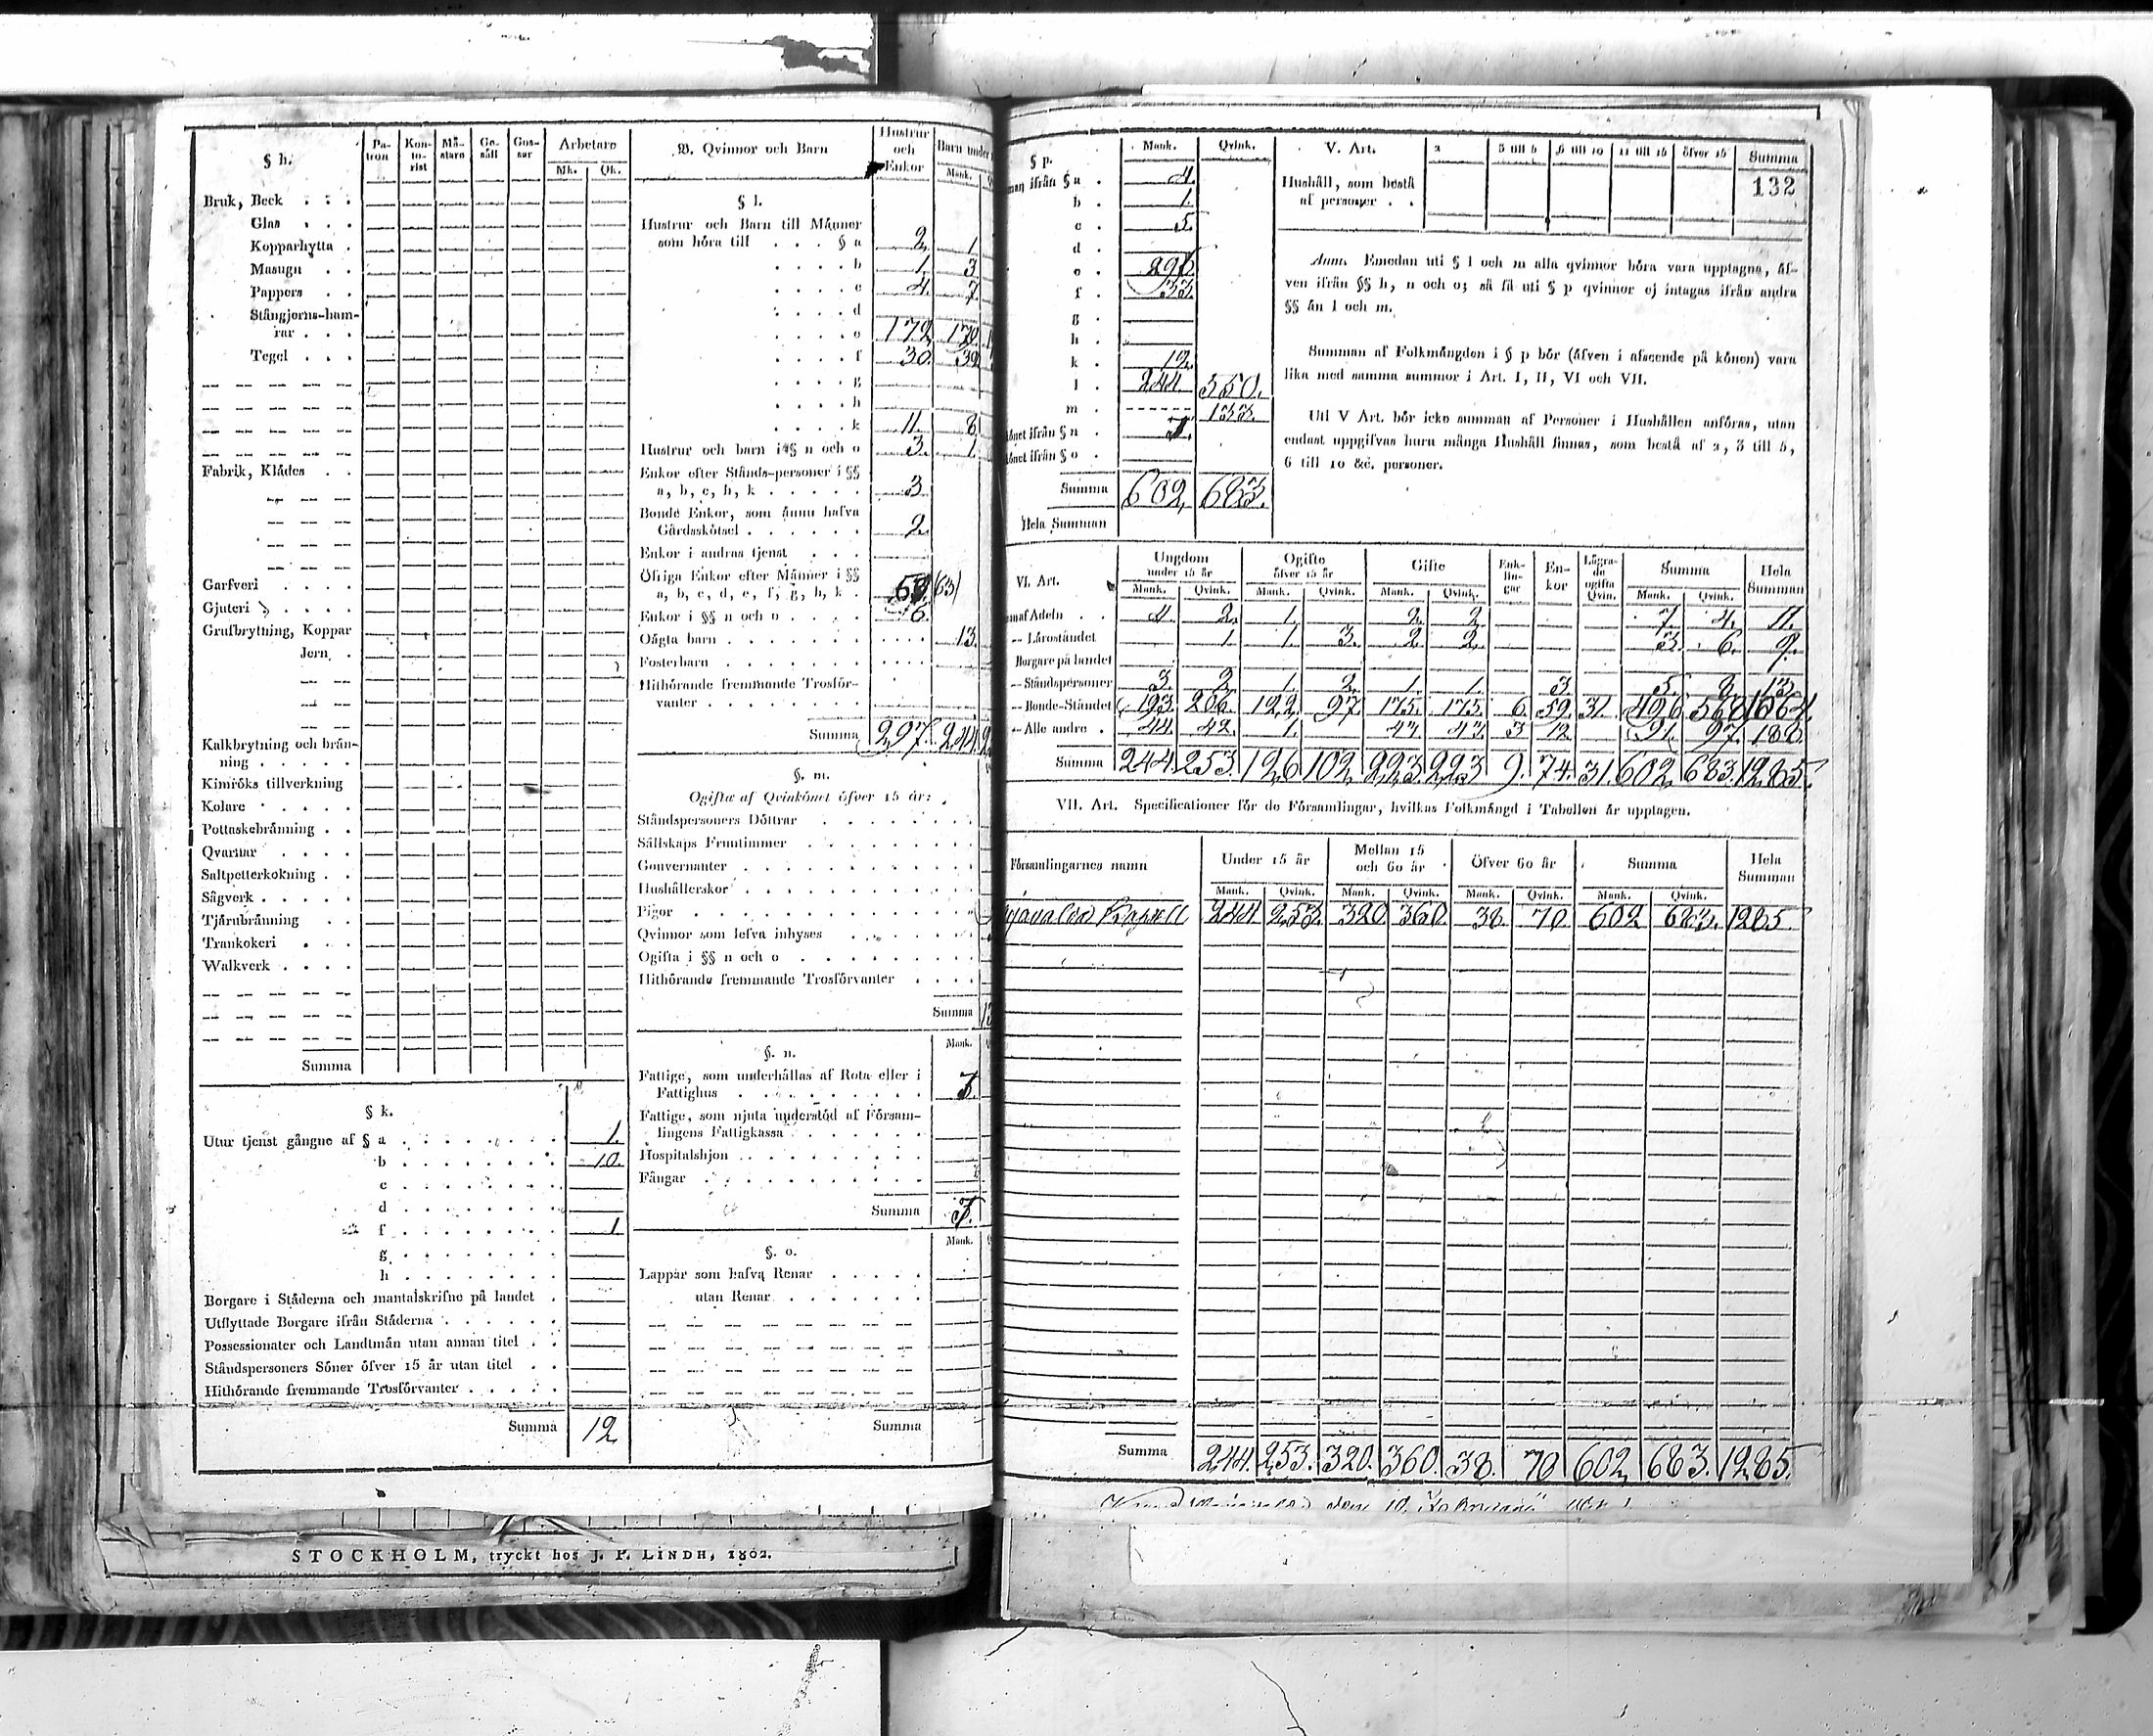 § h.
Pa-tron Kon-to-rist Må-stare Ge-säll Gos-sar Arbetare
Mk. Qk.
Bruk, Beck . . .
Glas . . .
Kopparhytta .
Masugn . .
Pappers . .
Stångjerns-ham-
rar . . .
Tegel . . .
Fabrik, Klådes . .
Garfveri . . . .
Gjuteri . . . .
Grufbrytning, Koppar
Jern .
Kalkbrytning och brån-
ning . . . . .
Kimröks tillverkning
Kolare . . . . .
Pottaskebrånning . .
Qvarnar . . . .
Saltpetterkokning . .
Sågverk . . . . .
Tjårubrånning . .
Trankokeri . . .
Walkverk . . . .
Summa
§ k.
Utur tjenst gångne af § a 1.
b 10.
c
d
f 1
g
h
Borgare i Ståderna och mantalskrifne på landet .
Utflyttade Borgare ifrån Ståderna . . . . .
Possessionater och Landtmån utan annan titel . .
Ståndspersoners Söner öfver 15 år utan titel . .
Hithörande fremmande Trosförvanter . . . . .
Summa 12
B. Qvinnor och Barn
Hustrur och Enkor Barn under
Mank.
§ l.
Hustrur och Barn till Månner
som höra till . . . § a 2 1
b 1 3
c 4. 7.
d
e 172
f 30. 39
g
h
k 11. 8.
Hustrur och barn i §§ n och o 3. 1.
Enkor efter Stånds-personer i §§
a, b, c, h, k . . . . . 3
Bonde Enkor, som ånnu hafva
Gårdsskötsel . . . . . . 2.
Enkor i andras tjenst . . .
Öfriga Enkor efter Månner i §§
a, b, c, d, e, f, g, h, k . (63)
Enkor i §§ n och o . . . . 6.
Oågta barn . . . . . . . 13.
Fosterbarn . . . . . . .
Hithörande fremmande Trosför-
vanter . . . . . . . .
Summa 297. 244
§. m.
Ogifta af Qvinkönet öfver 15 år:
Ståndspersoners Döttrar . . . . . . . .
Sållskaps Fruntimmer . . . . . . . . .
Gouvernanter . . . . . . . . . . . .
Hushållerskor . . . . . . . . . . . .
Pigor . . . . . . . . . . . . . .
Qvinnor som lefva inhyses . . . . . .
Ogifta i §§ n och o . . . . . . . . .
Hithörande fremmande Trosförvanter . . . .
Summa
§. n.
Mank.
Fattige, som underhållas af Rota eller i
Fattighus . . . . . . . .
Fattige, som njuta understöd af Försam-
lingens Fattigkassa . . . . . .
Hospitalshjon . . . . . . . . .
Fångar . . . . . . . . . . .
Summa
§. o.
Mank.
Lappar som hafva Renar . . . . .
utan Renar . . . . . . .
Summa
STOCKHOLM, tryckt hos J. P. LINDH, 1802.
§ p.
Mank. Qvink.
ifrån § a . 4.
b . 1.
c . 5.
d .
e .
f . 33.
g .
h .
k . 12.
l . 244 550.
m . 133.
ifrån § n .
ifrån § o .
Summa 602, 683.
Hela Summan
V. Art.
2 3 till 5 6 till 10 11 till 15 öfver 15 Summa
132
Hushåll, som bestå
af personer . .
Anm. Emedan uti § l och m alla qvinnor böra vara upptagne, åf-
ven ifrån §§ h, n och o; så få uti § p qvinnor ej intagas ifrån andra
§§ ån l och m.
Summan af Folkmångden i § p bör (åfven i afseende på könen) vara
lika med samma summor i Art. I, II, VI och VII.
Uti V Art. bör icke summan af Personer i Hushållen anföras, utan
endast uppgifvas huru många Hushåll finnas, som bestå af 2, 3 till 5,
6 till 10 &c. personer.
VI. Art.
Ungdom under 15 år Ogifte öfver 15 år Gifte Enk-lin-gar En-kor Lågra-de ogifta Qvin. Summa Hela Summan
Mank. Qvink. Mank. Qvink. Mank. Qvink. Mank. Qvink.
af Adeln . . 4 2. 1. 2 2 7. 4. 11.
— Låroståndet 1. 1. 3. 2 2. 3. 6. 9.
Borgare på landet
— Ståndspersoner 3. 2 1. 2. 1. 1. 3. 5. 8 13.
— Bonde-Ståndet 193. 206. 122 97 175. 175. 6. 59. 31. 496 568 1064.
— Alle andre . 44. 42. 1. 43. 43. 3 12 91. 97. 188.
Summa 244. 253. 126 102. 223. 223 9. 74. 31. 602. 683. 1285.
VII. Art. Specificationer för de Församlingar, hvilkas Folkmångd i Tabellen är upptagen.
Församlingarnes namn
Under 15 år Mellan 15 och 60 år Öfver 60 år Summa Hela Summan
Mank. Qvink. Mank. Qvink. Mank. Qvink. Mank. Qvink.
244 253. 320. 360. 38. 70. 602 683. 1285.
Summa 244. 253. 320. 360. 38. 70 602, 683. 1285.
den 10. Februarii